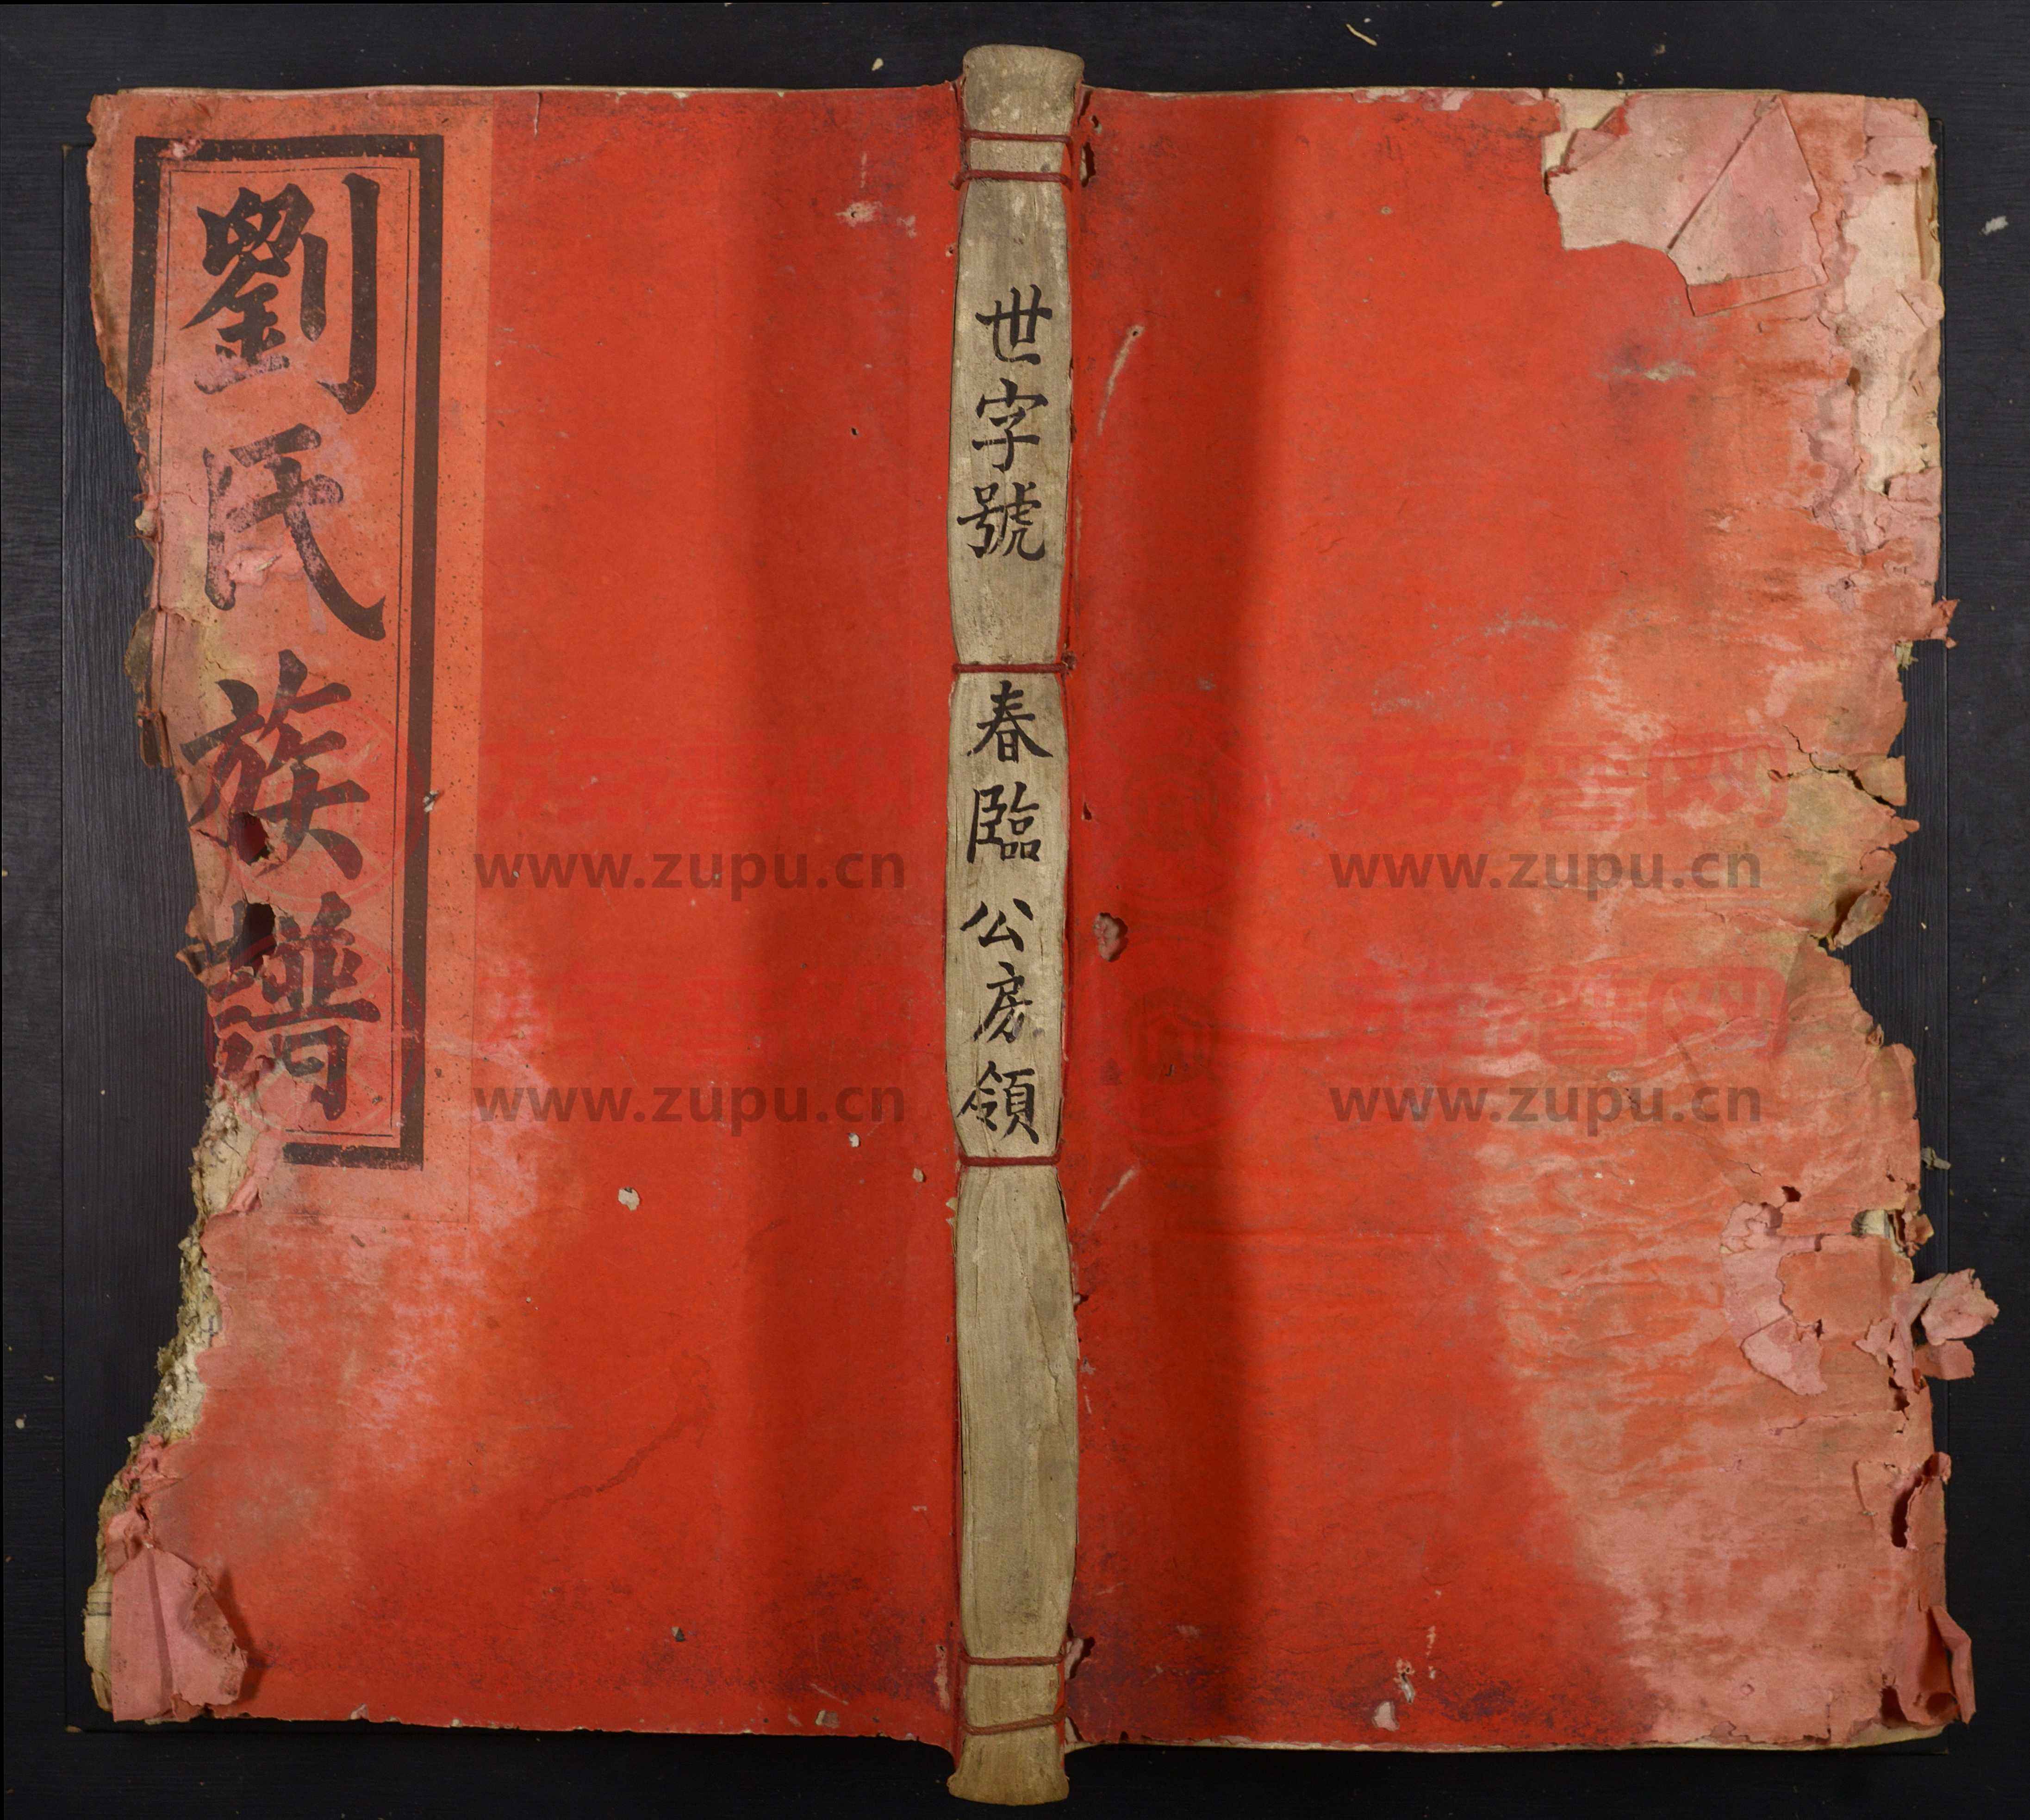 劉氏族譜
世字號
春臨公房領
www.zupu.cn
www.zupu.cn
www.zupu.cn
www.zupu.cn